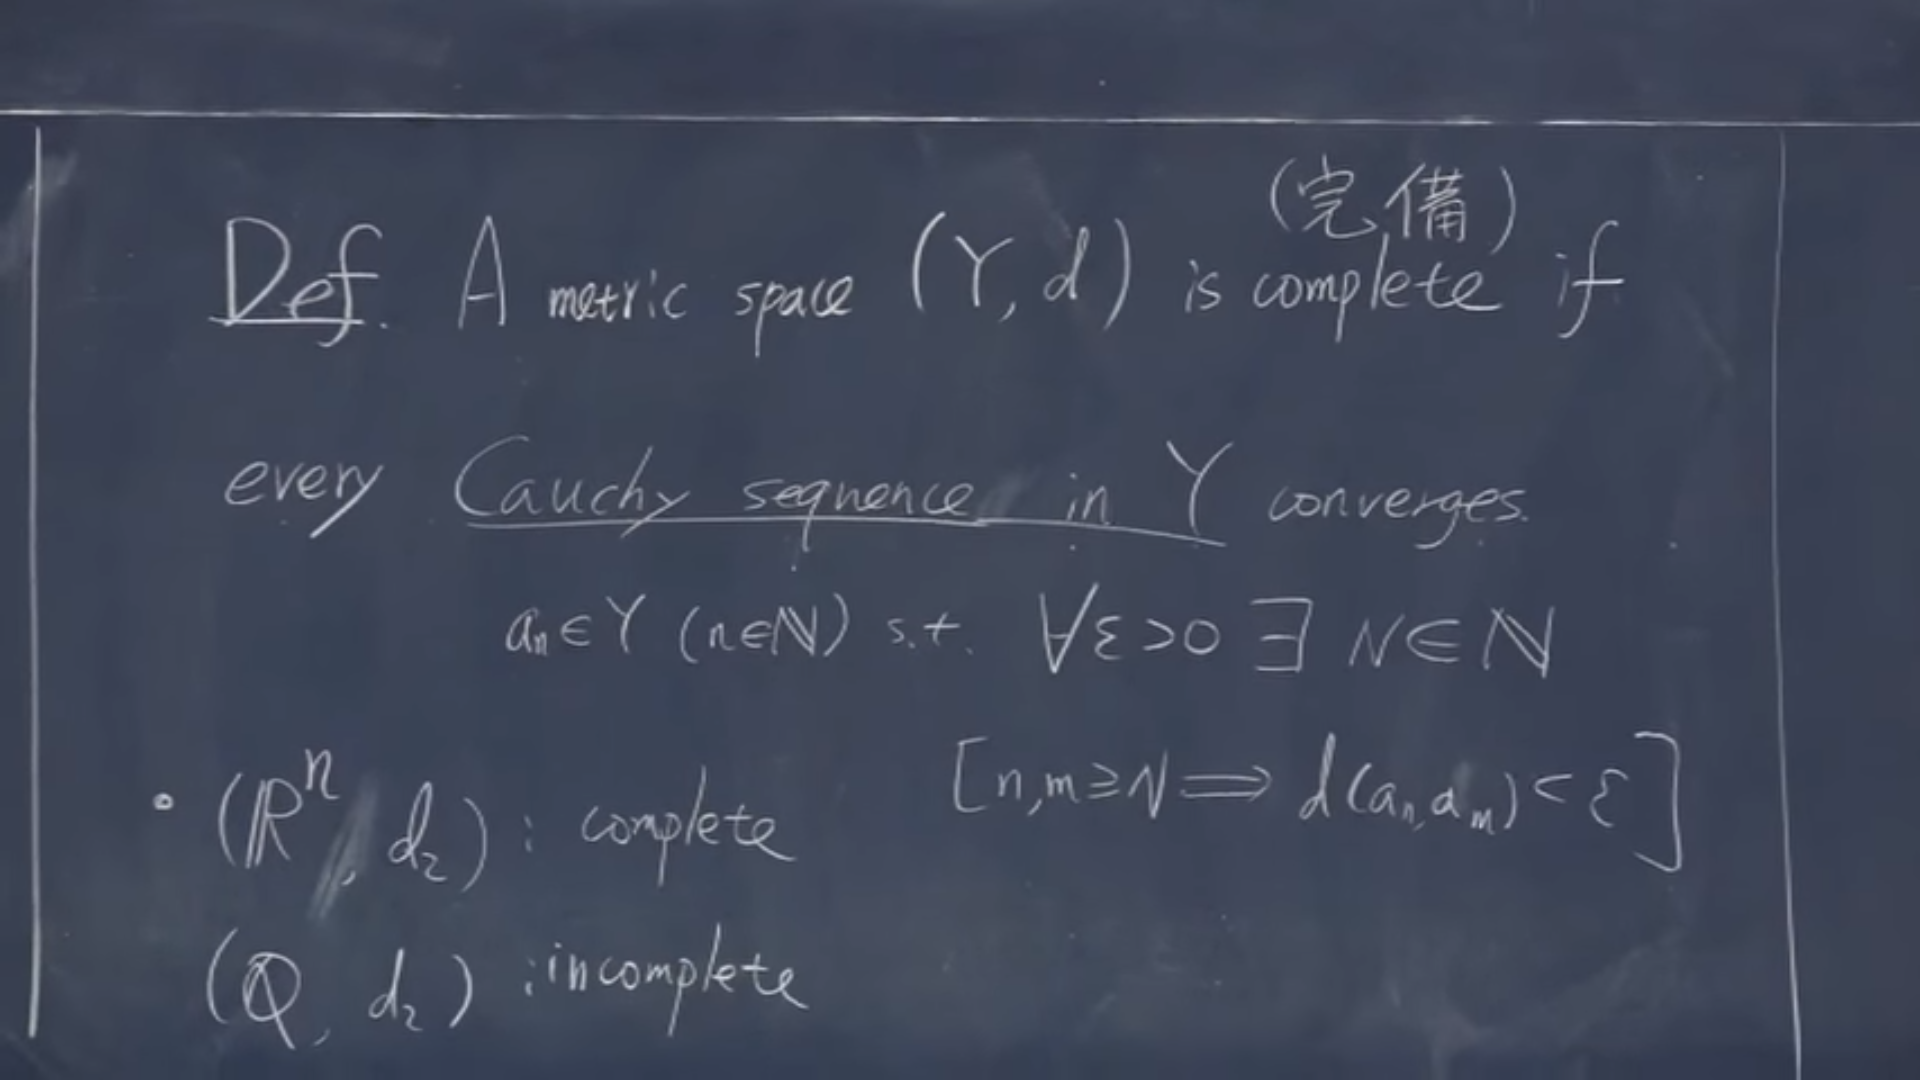 (完備)
Def. A metric space (Y, d) is complete if
every Cauchy sequence in Y converges.
aₙ∈Y (n∈ℕ) s.t. ∀ε>0 ∃ N∈ℕ
[n,m≥N ⟹ d(aₙ,aₘ)<ε]
• (ℝⁿ, d₂) : complete
(ℚ, d₂) : incomplete